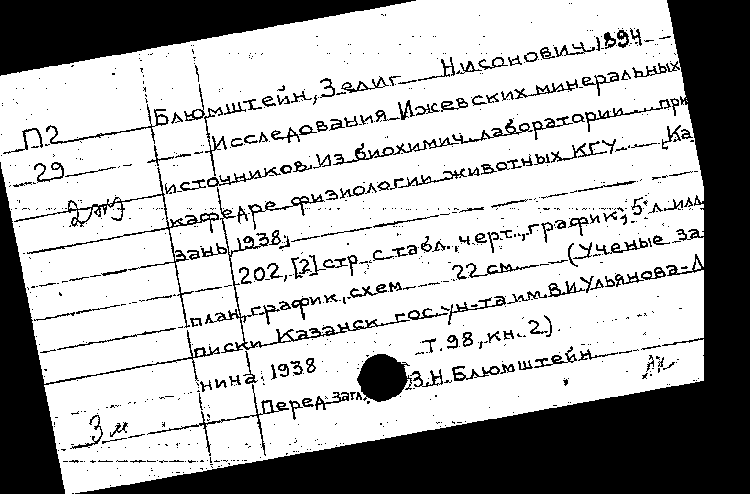 Блюмштейн, Зелиг Нисонович, 1894
П2
Исследования Ижевских минеральных
29
источников. Из биохимич. лаборатории при
кафедре физиологии животных КГУ. Ка
зань, 1938;
202, [2] стр. с табл., черт., график; 5 л. илл.
план, график, схем. 22 см. (Ученые за-
писки Казанск. гос. ун-та им. В.И. Ульянова-Л
нина. 1938 Т. 98, кн. 2).
Перед загл. З.Н. Блюмштейн